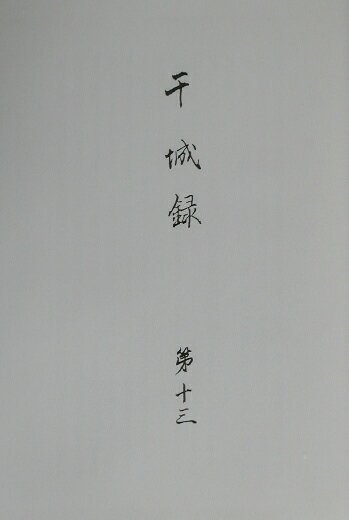 干城録
第十三